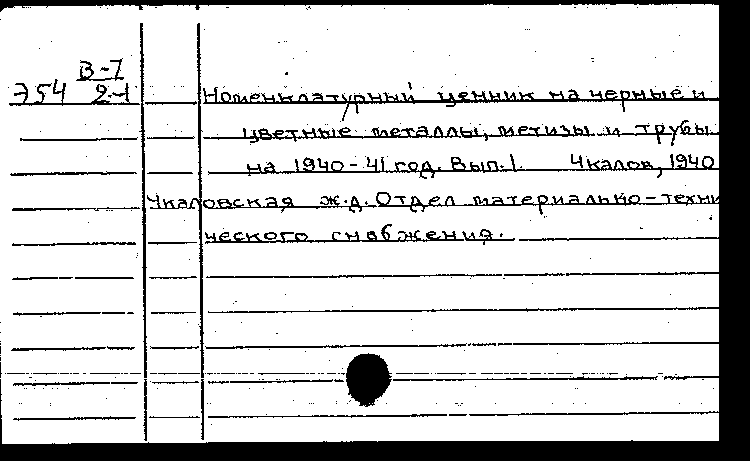 В-7
Э54 2-1
Номенклатурный ценник на черные и
цветные металлы, метизы и трубы
на 1940-41 год. Вып. 1. Чкалов, 1940
Чкаловская ж.д. Отдел материально-техни
ческого снабжения.